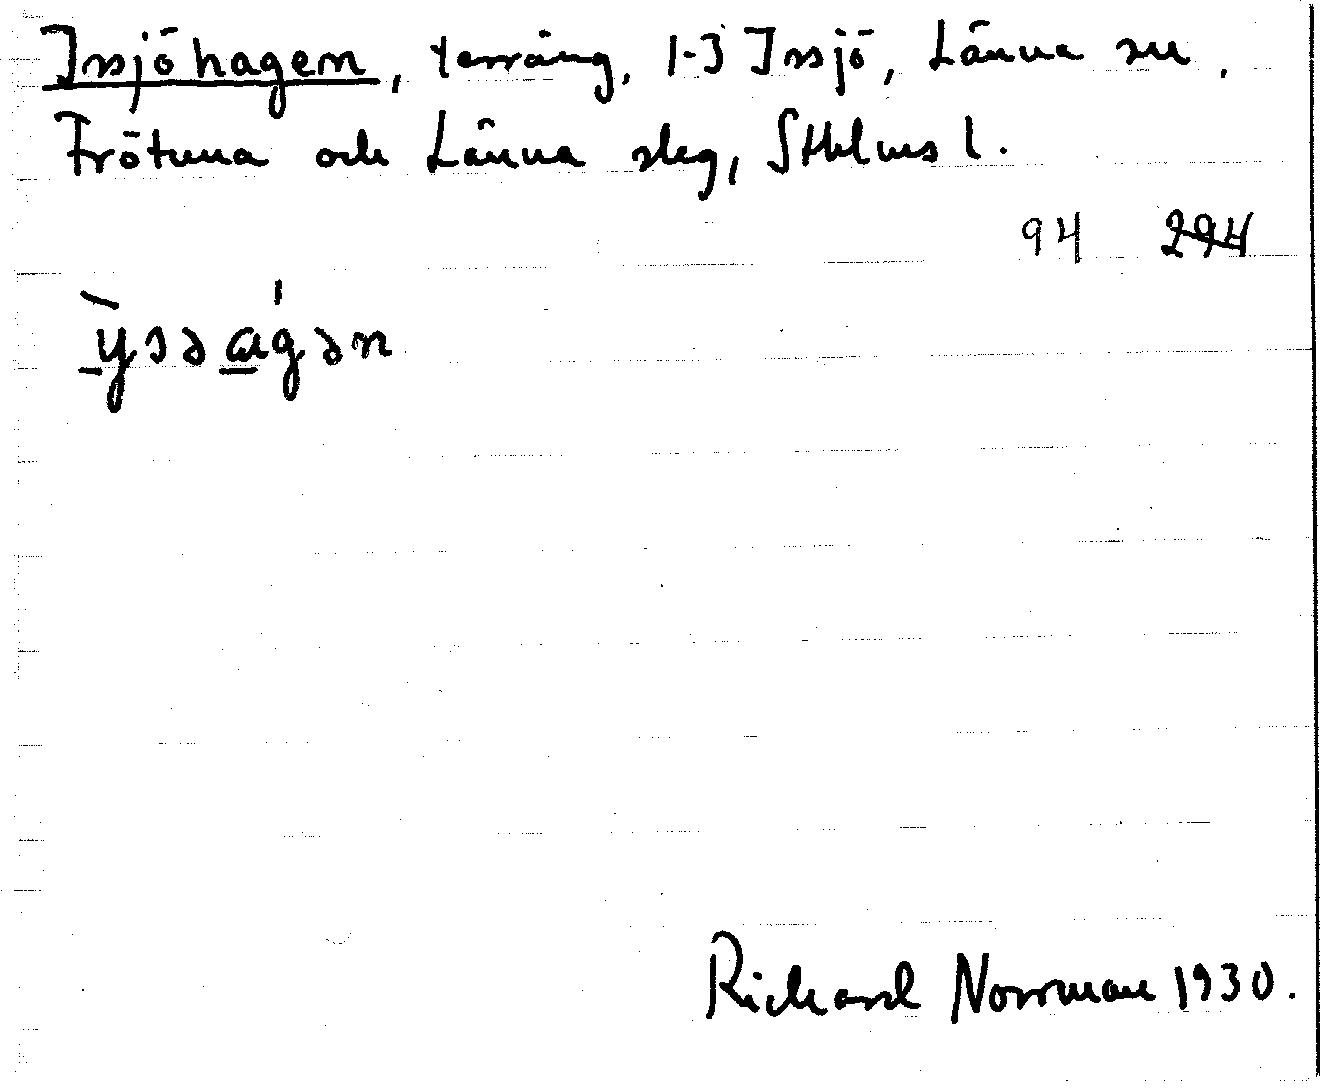 Issjöhagen, terräng, 1-3 Issjö, Länna sn,
Frötuna och Länna skg, Sthlms l.
94 294
ẏsəagən
Richard Norrman 1930.